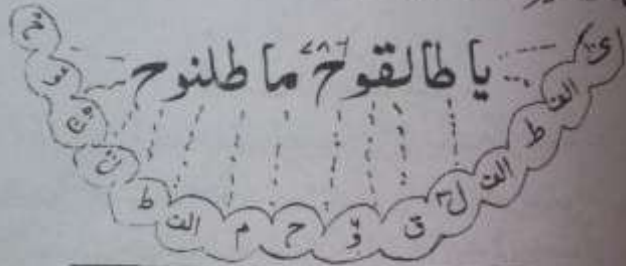 یا طالقوح ٧٨٦ ما طلنوح
الف ط الف ل ق و ح م الف ط و ح